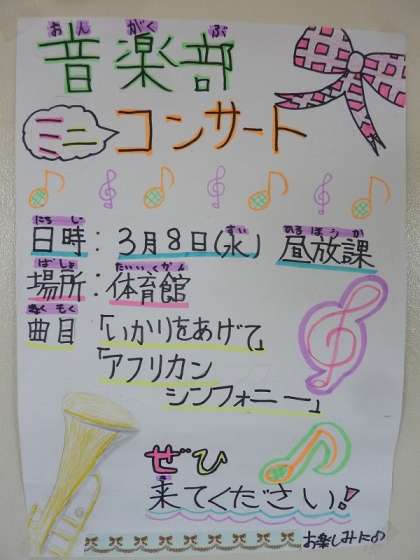 おんがくぶ
音楽部
ミニ コンサート
にちじ すい ひるほうか
日時：3月8日(水) 昼放課
ばしょ たいいくかん
場所：体育館
きょくもく
曲目 「いかりをあげて」
「アフリカン
シンフォニー」
ぜひ
来てください!
お楽しみに♪